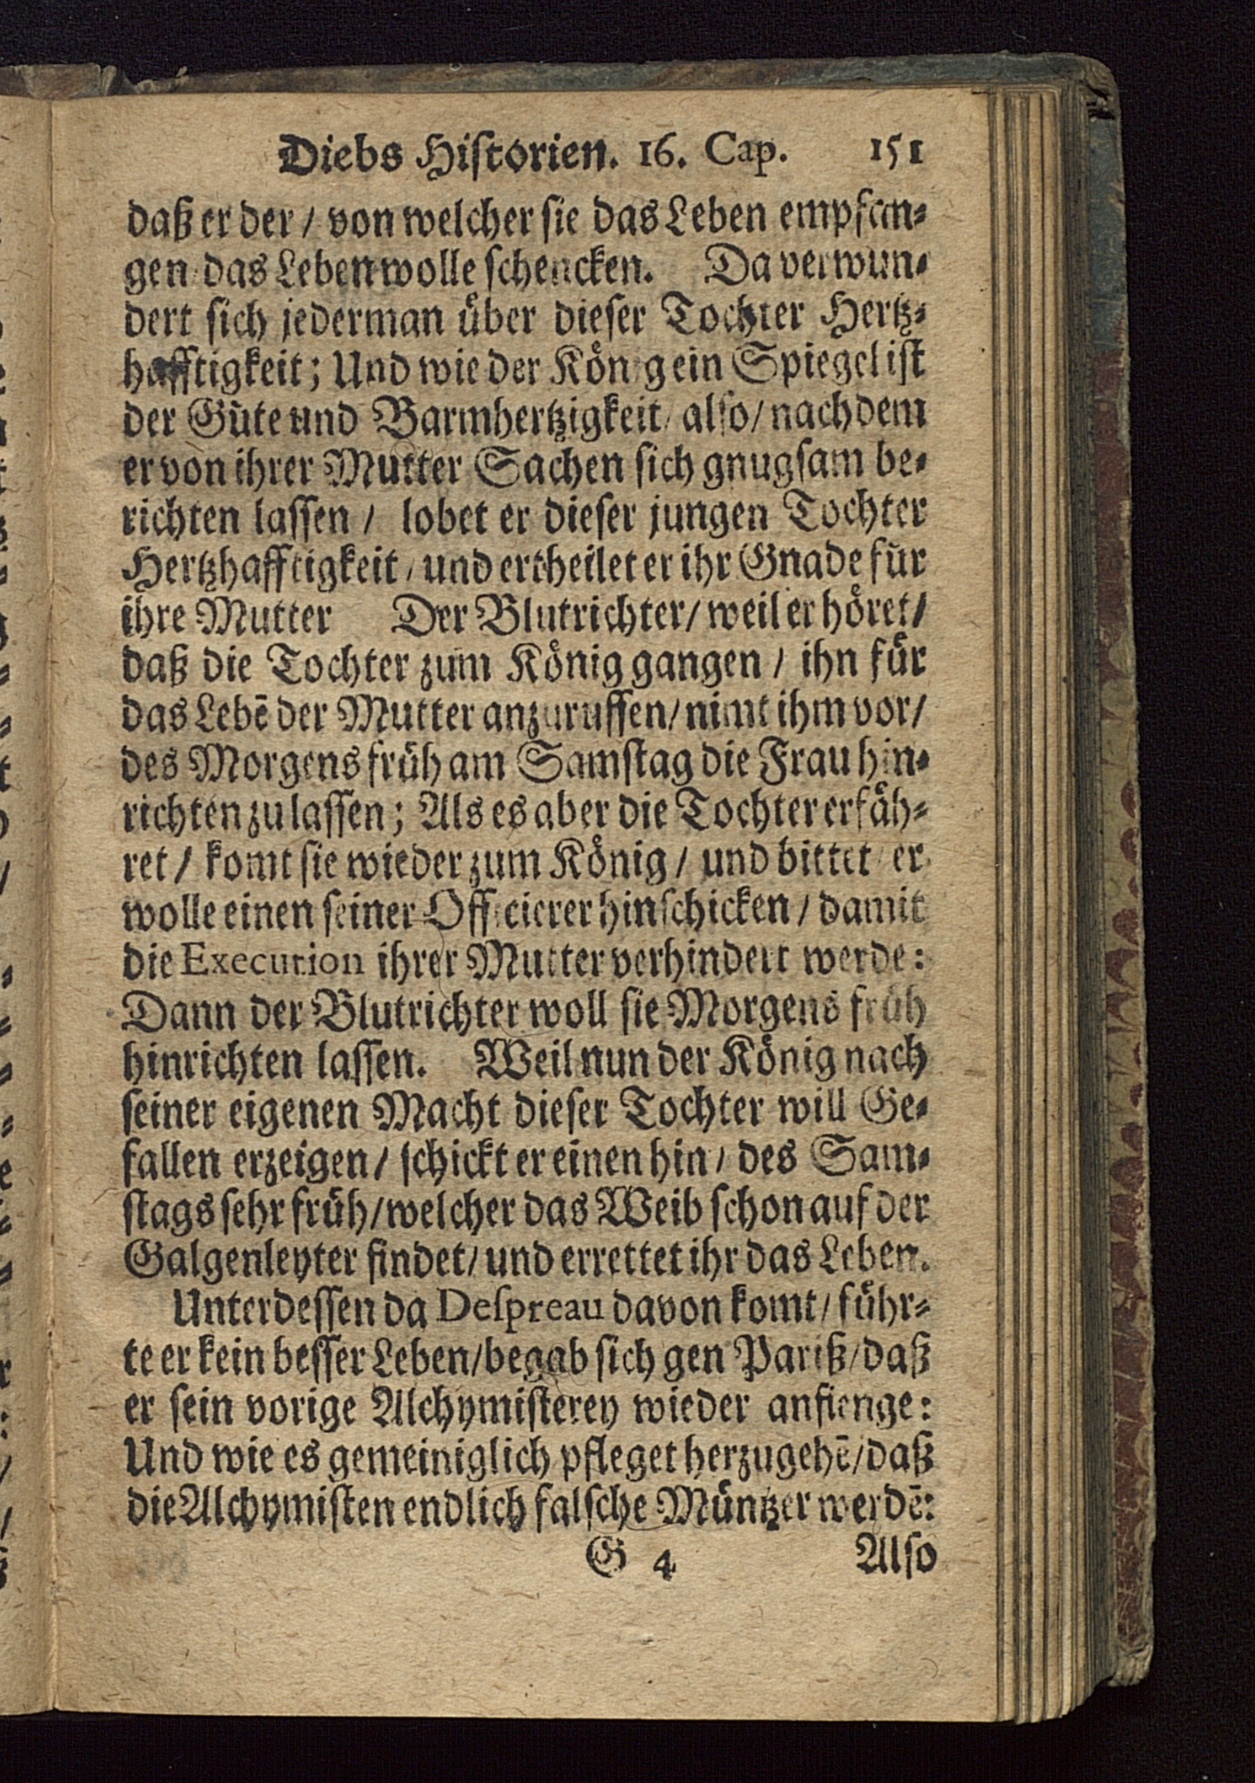 Diebs Historien. 16. Cap. 151
daß er der / von welcher sie das Leben empfan-
gen / das Leben wolle schencken. Da verwun-
dert sich jederman über dieser Tochter Hertz-
hafftigkeit; Und wie der König ein Spiegel ist
der Güte und Barmhertzigkeit / also / nachdem
er von ihrer Mutter Sachen sich gnugsam be-
richten lassen / lobet er dieser jungen Tochter
Hertzhafftigkeit / und ertheilet er ihr Gnade für
ihre Mutter Der Blutrichter / weil er höret /
daß die Tochter zum König gangen / ihn für
das Lebē der Mutter anzuruffen / nimt ihm vor /
des Morgens früh am Samstag die Frau hin-
richten zu lassen; Als es aber die Tochter erfäh-
ret / komt sie wieder zum König / und bittet / er
wolle einen seiner Officierer hinschicken / damit
die Execution ihrer Mutter verhindert werde:
Dann der Blutrichter woll sie Morgens früh
hinrichten lassen. Weil nun der König nach
seiner eigenen Macht dieser Tochter will Ge-
fallen erzeigen / schickt er einen hin / des Sam-
stags sehr früh / welcher das Weib schon auf der
Galgenleyter findet / und errettet ihr das Leben.
Unterdessen da Despreau davon komt / führ-
te er kein besser Leben / begab sich gen Pariß / daß
er sein vorige Alchymisterey wieder anfienge:
Und wie es gemeiniglich pfleget herzugehē / daß
die Alchymisten endlich falsche Müntzer werdē:
G 4 Also